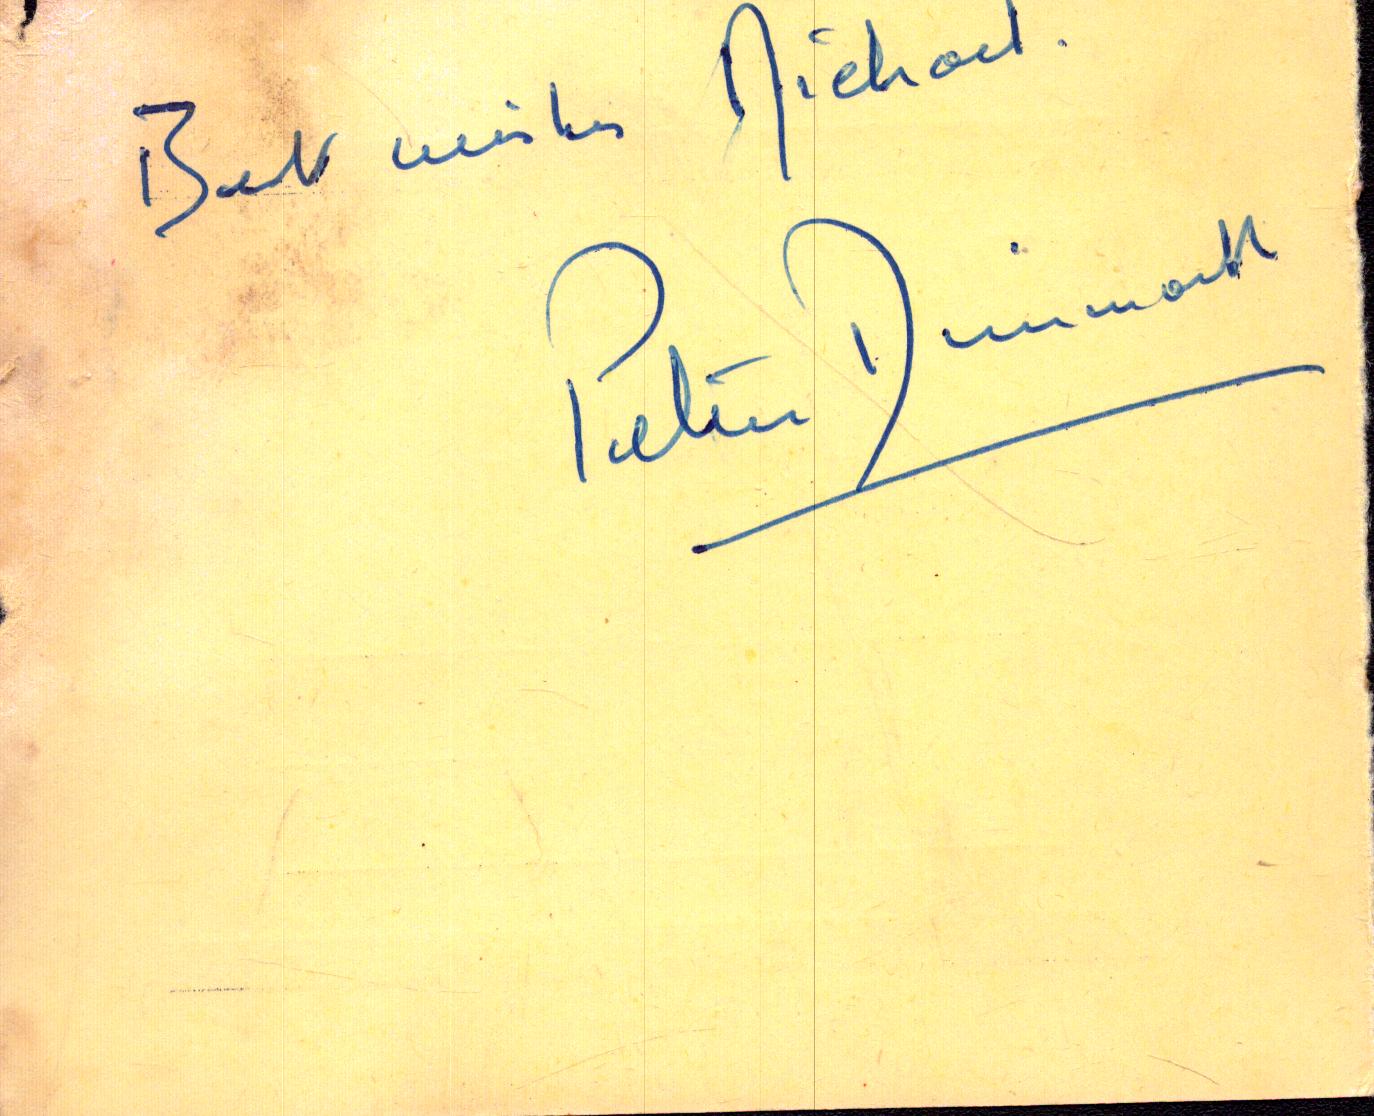 Best wishes Michael.
Peter Dimmock